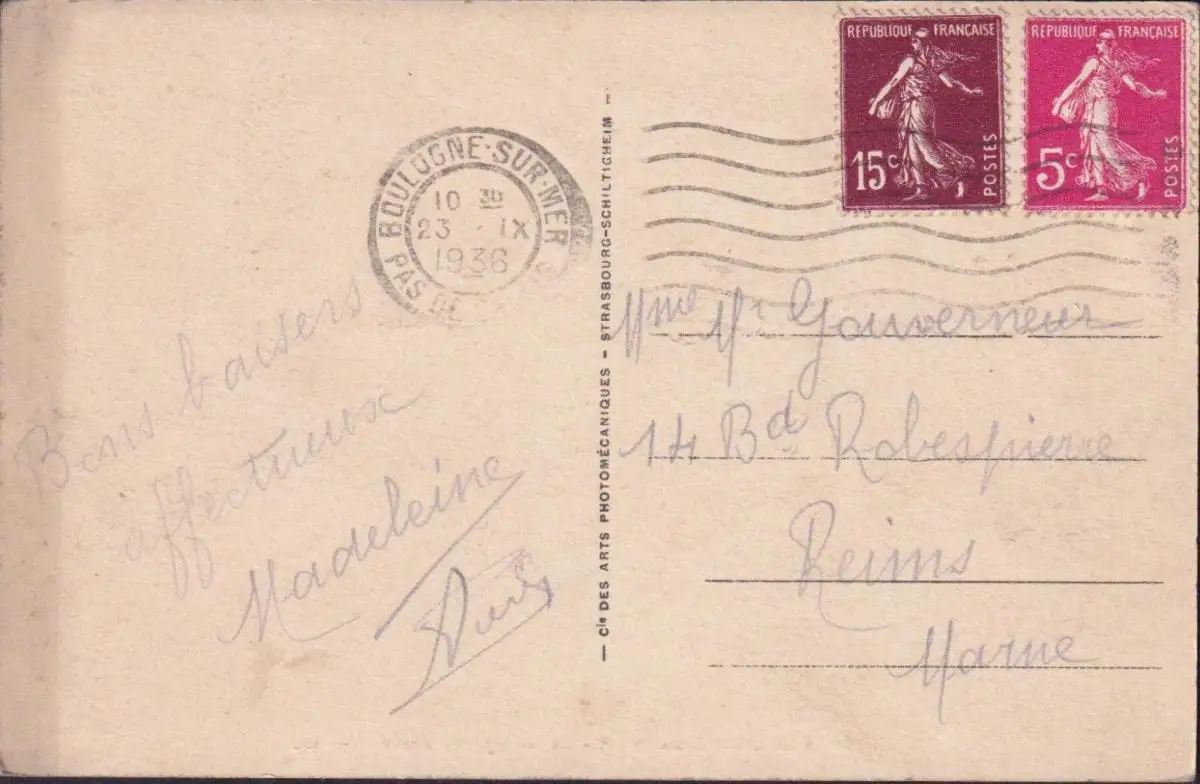 RÉPUBLIQUE FRANÇAISE
15c
POSTES
RÉPUBLIQUE FRANÇAISE
5c
POSTES
BOULOGNE-SUR-MER
PAS DE
10 30
23 IX
1936
Bons baisers
affectueux
Madeleine
— Cie DES ARTS PHOTOMÉCANIQUES – STRASBOURG-SCHILTIGHEIM –
Mme Mr Gouverneur
14 Bd Robespierre
Reims
Marne